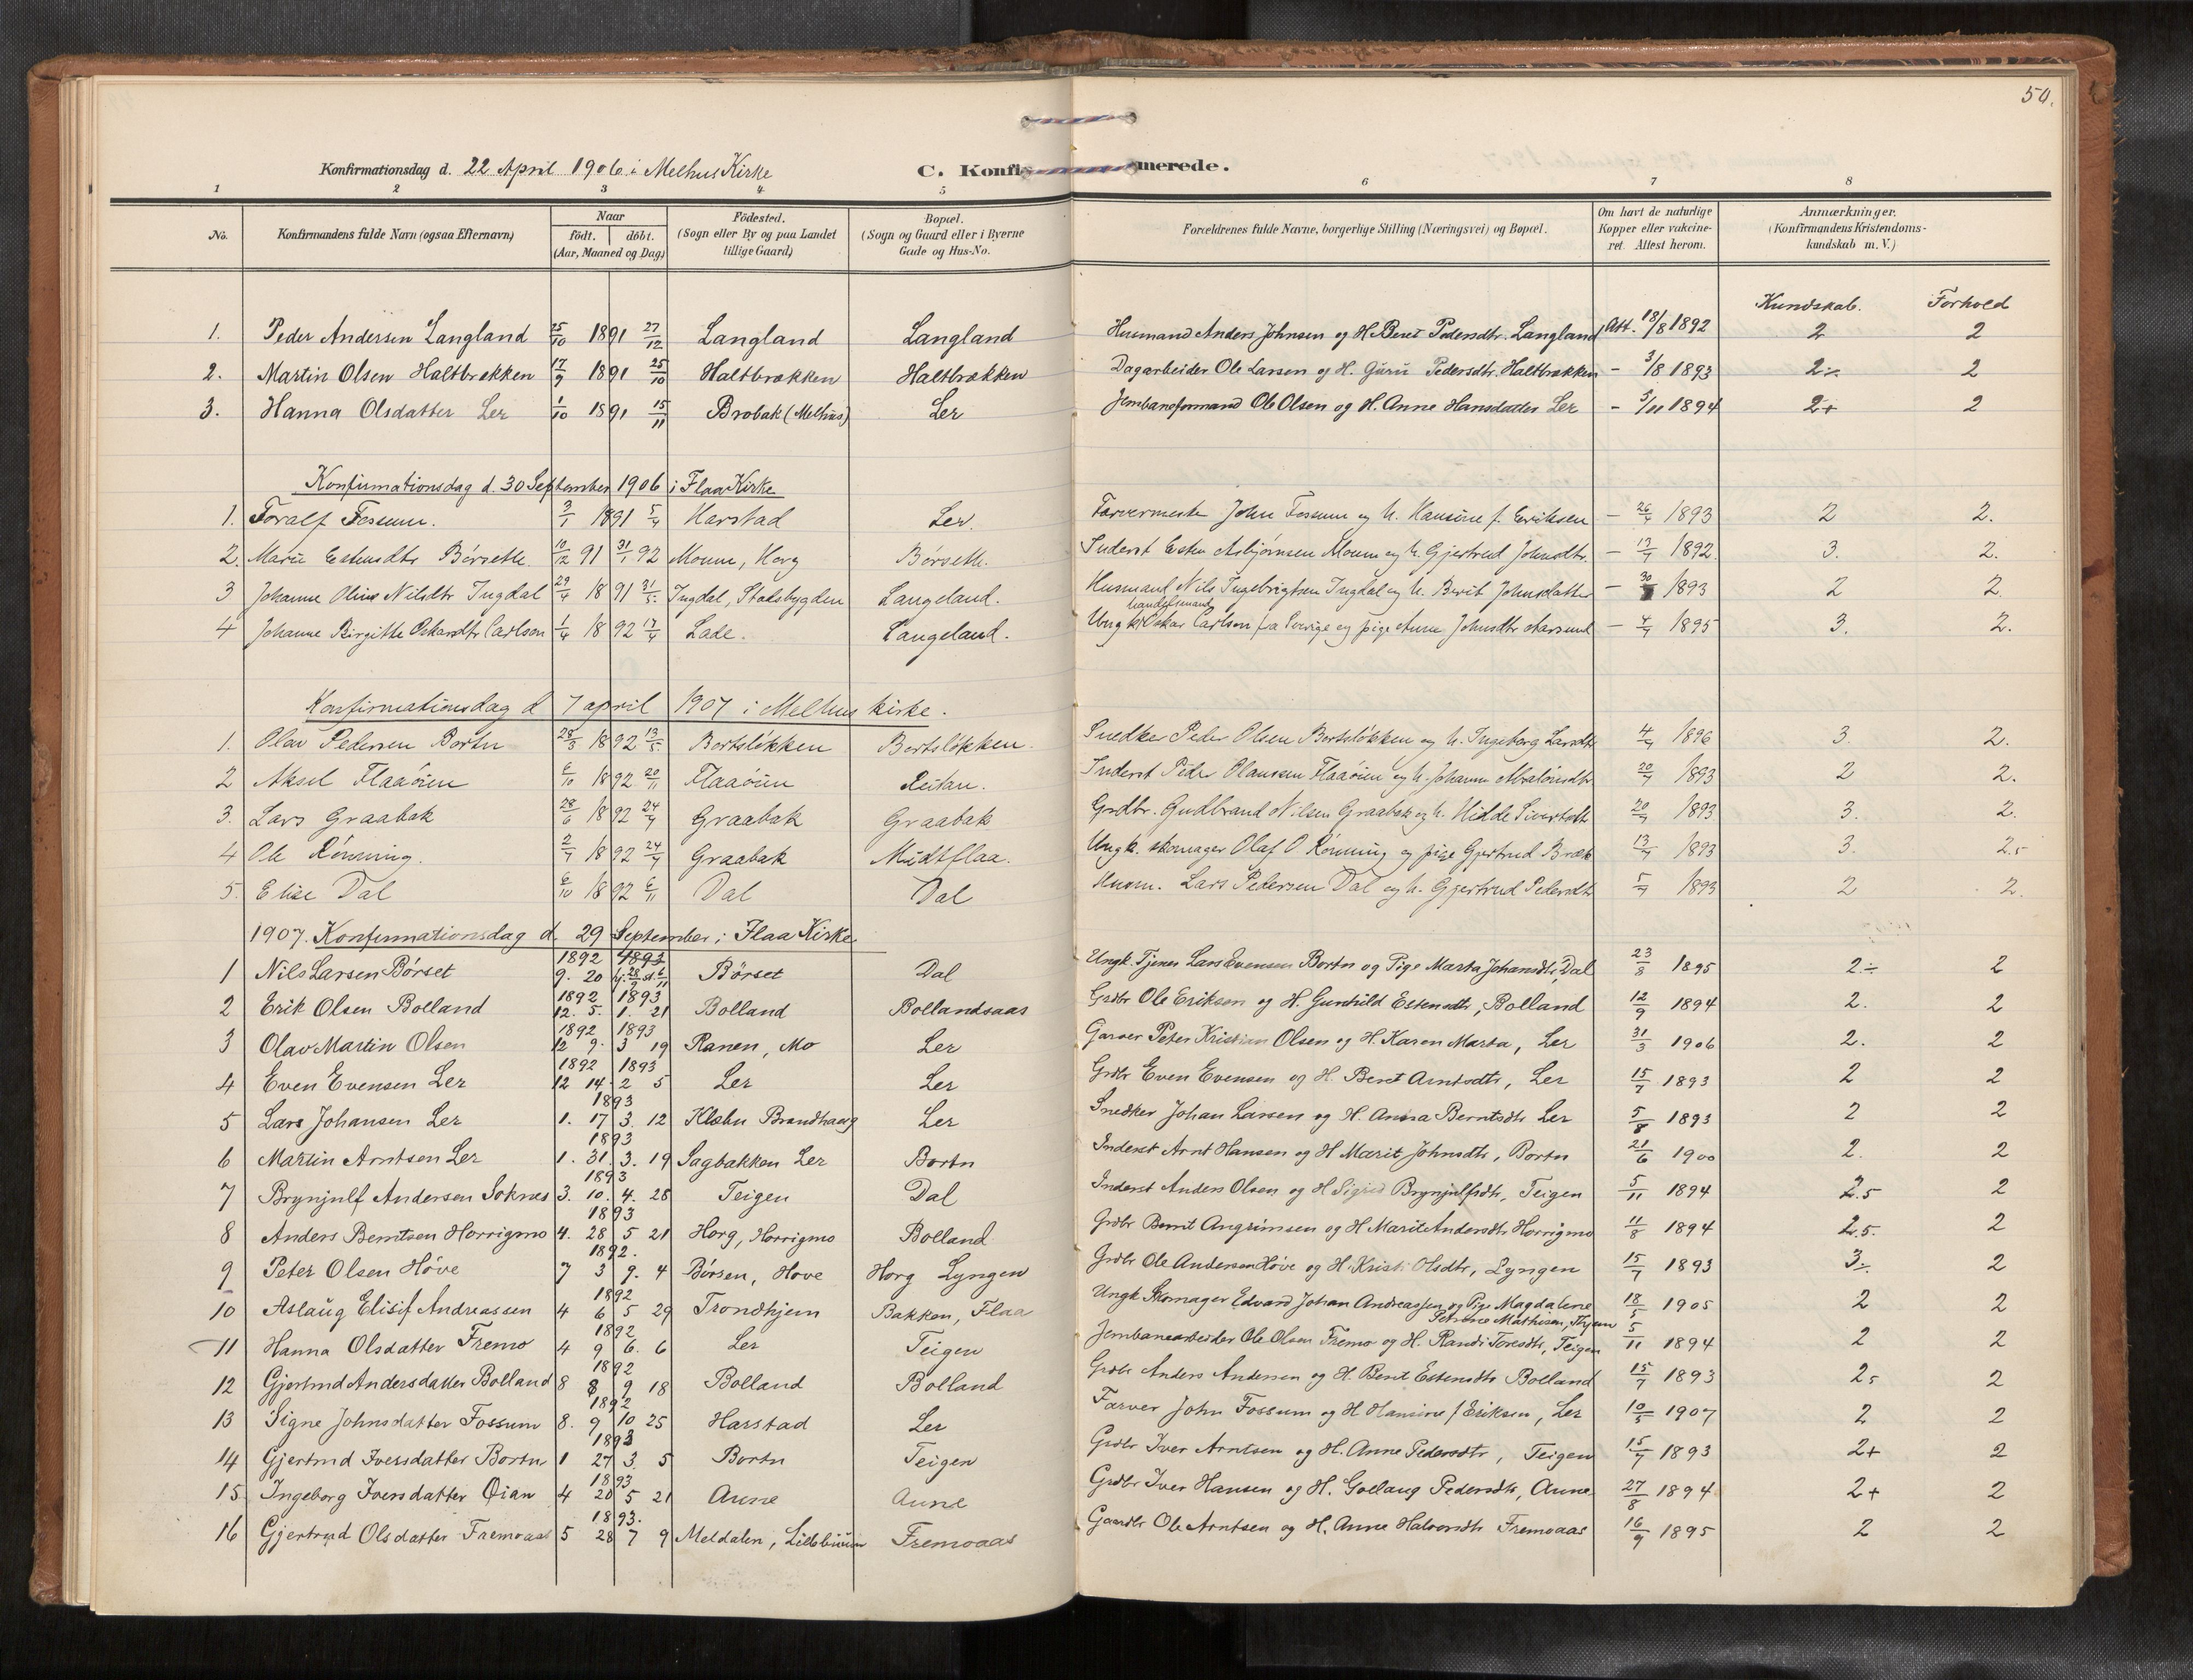 50.
Konfirmationsdag d. 22 April 1906 i Melhus Kirke
C. Konfirmerede.
1 2 3 4 5 6 7 8
No. Konfirmandens fulde Navn (ogsaa Efternavn) Naar födt. döbt. (Aar, Maaned og Dag) Födested. (Sogn eller By og paa Landet tillige Gaard) Bopæl. (Sogn og Gaard eller i Byerne Gade og Hus-No. Forældrenes fulde Navne, borgerlige Stilling (Næringsvei) og Bopæl. Om havt de naturlige Kopper eller vakcineret. Attest herom. Anmærkninger. (Konfirmandens Kristendomskundskab m. V.)
Kundskab. Forhold
1. Peder Andersen Langland 25/10 1891 27/12 Langland Langland Husmand Anders Johnsen og H Beret Pedersdtr. Langland Att. 18/8 1892 2 2
2. Martin Olsen Haltbrækken 17/9 1891 25/10 Haltbrækken Haltbrækken Dagarbeider Ole Larsen og H. Guru Pedersdtr. Haltbrækken - 3/8 1893 2÷ 2
3. Hanna Olsdatter Ler 1/10 1891 15/11 Brobak (Melhus) Ler Jernbaneformand Ole Olsen og H. Anne Hansdatter Ler - 5/11 1894 2+ 2
Konfirmationsdag d. 30 September 1906 i Flaa Kirke
1. Toralf Fossum. 3/1 1891 5/4 Harstad Ler. Farvermester John Fossum og h. Hansine f. Eriksen - 26/4 1893 2 2.
2. Marie Estensdtr Børseth 10/12 91 31/1 92 Moum, Horg Børseth. Inderst Esten Asbjørnsen Moum og h. Gjertrud Johnsdtr. - 13/7 1892. 3. 2.
3 Johanne Oline Nilsdtr Ingdal 29/4 1891 31/5. Ingdal, Stadsbygden Langeland. Husmand Nils Ingebrigtsen Ingdal og h. Berit Johnsdatter - 30 1893 2 2.
4 Johanne Birgitte Oskarsdtr Carlson 1/4 1892 17/4 Lade. Langeland. Ungk. handelsmand Oskar Carlson fra Sverige og pige Anne Johnsdtr Aarsund - 4/7 1895 3. 2.
Konfirmationsdag d 7 april 1907 i Melhus kirke.
1. Olav Pedersen Bortn 28/3 1892 13/5. Bortsløkken Bortsløkken. Snedker Peder Olsen Bortsløkken og h. Ingeborg Larsdtr 4/7 1896 3. 2.
2 Aksel Flaaøien 6/10 1892 20/11 Flaaøien Reitan. Inderst Peder Olaussen Flaaøien og h. Johanna 20/7 1893 2 2.
3. Lars Graabak 28/6 1892 24/7 Graabak Graabak Grdbr. Gudbrand Nilsen Graabak og h. Hidde Sivertsdtr 20/7 1893 3. 2.
4 Ole Rønning. 2/7 1892 24/7 Graabak Midtflaa. Ungk. skomager Olaf O Rønning og pige Gjertrud Bræk 13/7 1893 3. 2.5
5. Elise Dal 6/10 1892 6/11 Dal Dal Husm. Lars Pedersen Dal og h. Gjertrud Pedersdtr 5/7 1893 2 2.
1907. Konfirmationsdag d. 29 September i Flaa Kirke
1 Nils Larsen Børset 1892 9. 20 1893 hj. 28/9 st. 6/11 Børset Dal Ungk. Tjener Lars Evensen Bortn og Pige Marta Johansdtr, Dal 23/8 1895 2÷ 2
2 Erik Olsen Bolland 1892 12. 5. 1893 1. 21 Bolland Bollandsaas Grdbr Ole Eriksen og H. Gunhild Estensdtr, Bolland 12/9 1894 2. 2
3 Olav Martin Olsen 1892 12 9. 1893 3 19 Ranen, Mo Ler Garver Peter Kristian Olsen og H. Karen Marta, Ler 31/3 1906 2. 2
4 Even Evensen Ler 1892 12 14. 1893 2 5 Ler Ler Grdbr Even Evensen og H. Beret Arntsdtr, Ler 15/7 1893 2 2
5 Lars Johansen Ler 1893 1. 17 3. 12 Klæbu Brandhaug Ler Snedker Johan Larsen og H. Anna Berntsdtr Ler 5/8 1893 2 2
6 Martin Arntsen Ler 1893 1. 31. 3. 19 Sagbakken Ler Bortn Inderst Arnt Hansen og H Marit Johnsdtr, Bortn 21/6 1900 2. 2
7 Brynjulf Andersen Soknes 1893 3. 10. 4. 28 Teigen Dal Inderst Anders Olsen og H Sigrid Brynjulfsdtr, Teigen 5/11 1894 2.5 2
8 Anders Berntsen Horrigmo 1893 4. 28 5 21 Horg, Horrigmo Bolland Grdbr Bernt Angrimsen og H Marit Andersdtr Horrigmo 11/8 1894 2.5. 2
9 Peter Olsen Høve 1892. 7 3 9. 4 Børsen, Hove Horg Lyngen Grdbr Ole Andersen Høve og H. Kristi Olsdtr, Lyngen 15/7 1893 3÷ 2
10 Aslaug Elisif Andreassen 1892 4 6 5 29 Trondhjem Bakken, Flaa Ungk Skomager Edvard Johan Andreassen og Pige Magdalene Petrine Mathisen, Thjem 18/5 1905 2 2
11 Hanna Olsdatter Fremo 1892 4 9 6. 6 Ler Teigen Jernbanearbeider Ole Olsen Fremo og H. Randi Toresdtr, Teigen 5/11 1894 2 2
12 Gjertrud Andersdatter Bolland 1892 8 8 9 18 Bolland Bolland Grdbr Anders Andersen og H. Beret Estensdtr Bolland 15/7 1893 2,5 2
13 Signe Johnsdatter Fossum 1892 8. 9 10 25 Harstad Ler Farver John Fossum og H Hansine f Eriksen, Ler 10/5 1907 2 2
14 Gjertrud Iversdatter Bortn 1893 1 27 3. 5 Bortn Teigen Grdbr Iver Arntsen og H. Anne Pedersdtr, Teigen 15/7 1893 2+ 2
15. Ingeborg Iversdatter Øian 1893 4 20 5 21 Aune Aune Grdbr Iver Hansen og H. Gollaug Pedersdtr, Aune 27/8 1894 2+ 2
16 Gjertrud Olsdatter Fremoaas 1893. 5 28 7 9 Meldalen, Fremoaas Gaardbr Ole Arntsen og H. Anne Halvorsdtr Fremoaas 16/9 1895 2 2